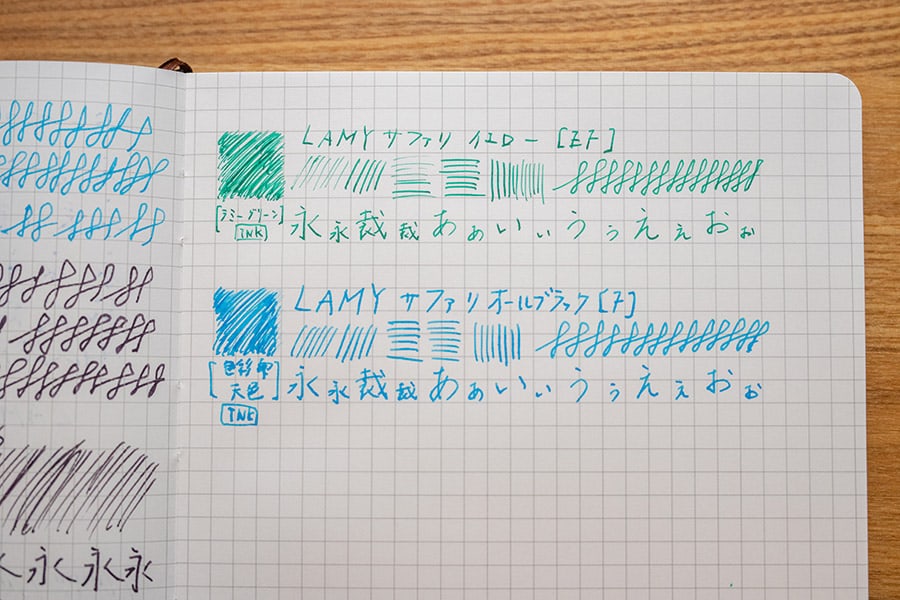 永く永く永
LAMY サファリ イエロー [EF]
[ラミーグリーン]
INK
永 永 裁 裁 あ ぁ い ぃ う ぅ え ぇ お ぉ
LAMY サファリ オールブラック [F]
[色彩雫
天色]
INK
永 永 裁 裁 あ ぁ い ぃ う ぅ え ぇ お ぉ